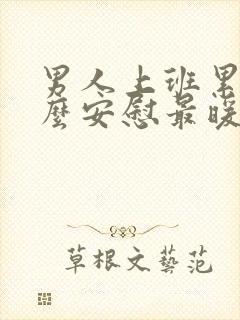 男人上班累
麼安慰最暖
草根文藝范